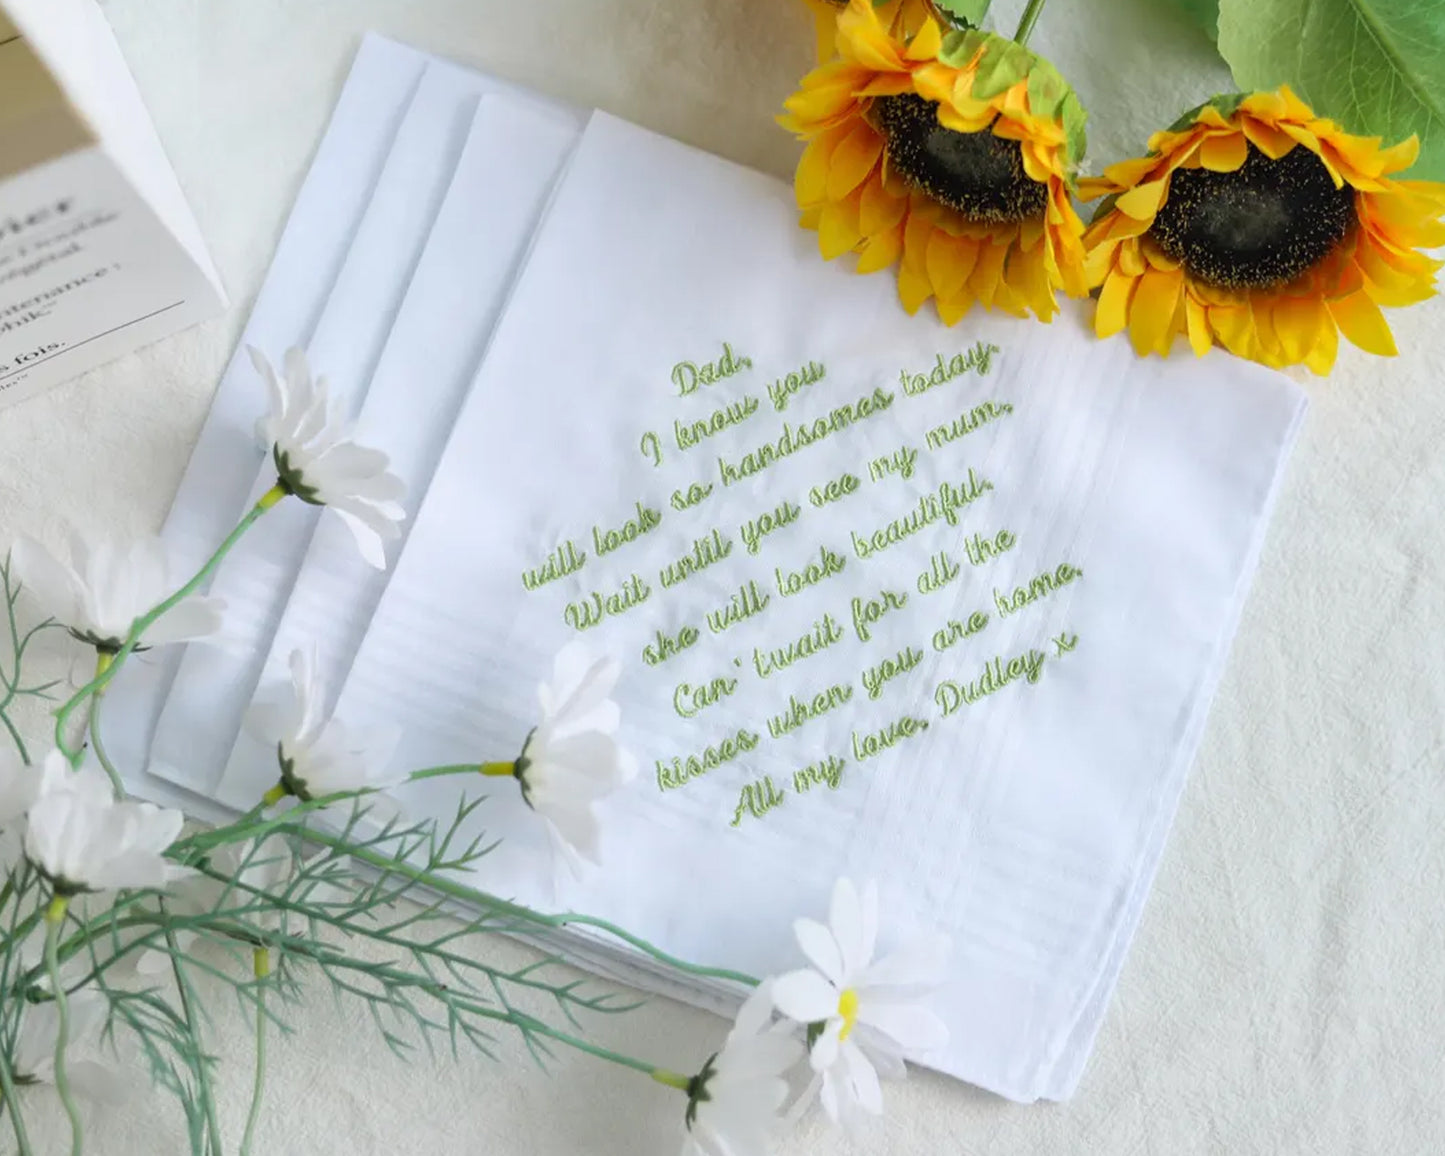 Dad,
I know you
will look so handsomes today.
Wait until you see my mum,
she will look beautiful.
Can' twait for all the
kisses when you are home.
All my love, Dudley x
ntenance :
s fois.